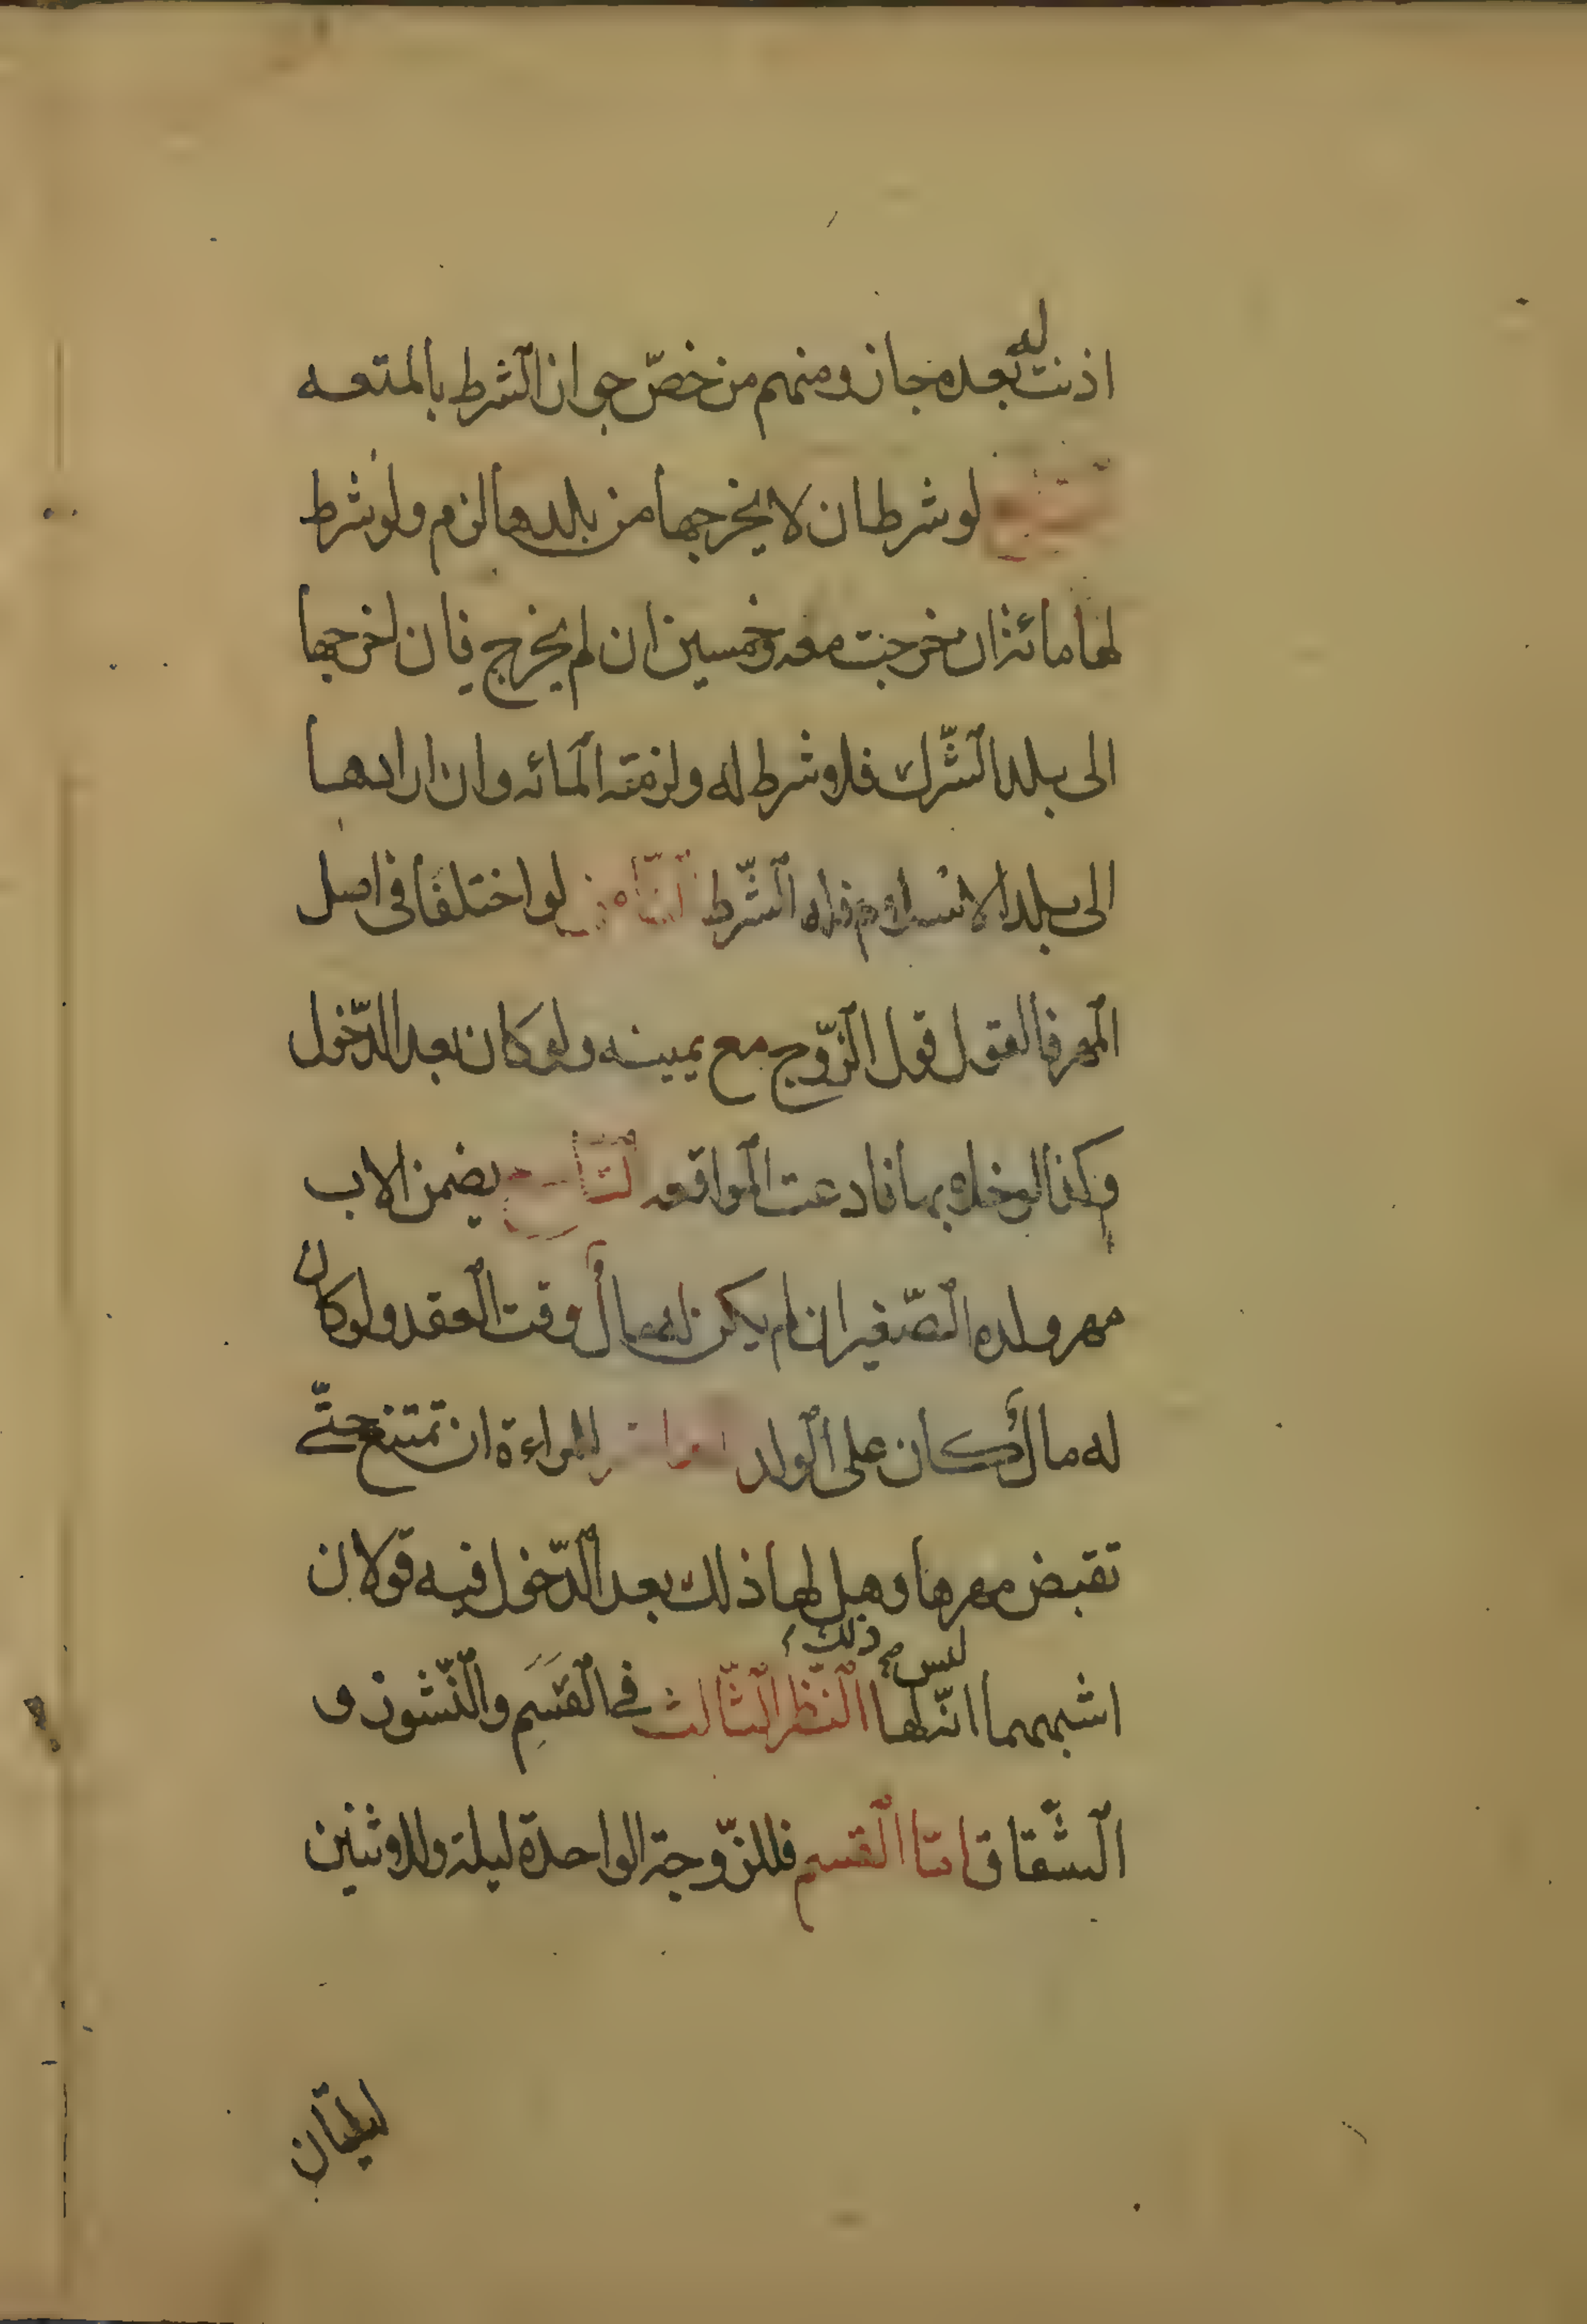 اذنت له بعده جاز ومنهم من خصّ جواز الشرط بالمتعه
لو شرط ان لا يخرجها من بلدها لزم ولو شرط
لها مائة ان خرجت معه وخمسين ان لم يخرج فان اخرجها
الى بلد الشّرك فلا شرط له ولزمته المائه وان ارادها
الى بلد الاسلام فله الشّرط الثامن لو اختلفا فى اصل
المهر فالقول قول الزّوج مع يمينه ولو كان بعد الدّخول
وكذا لو خلا بها فادعت المواقعه التاسع يضمن الاب
مهر ولده الصّغير ان لم يكن له مال وقت العقد ولو كان
له مال كان على الولد للمراءة ان تمتنع حتّى
تقبض مهرها وهل لها ذلك بعد الدّخول فيه قولان
اشبههما انّه ليس لها ذلك النّظر الثّالث فى القسم والنّشوز و
الشّقاق امّا القسم فللزّوجة الواحدة ليلة وللاثنين
ليلتان